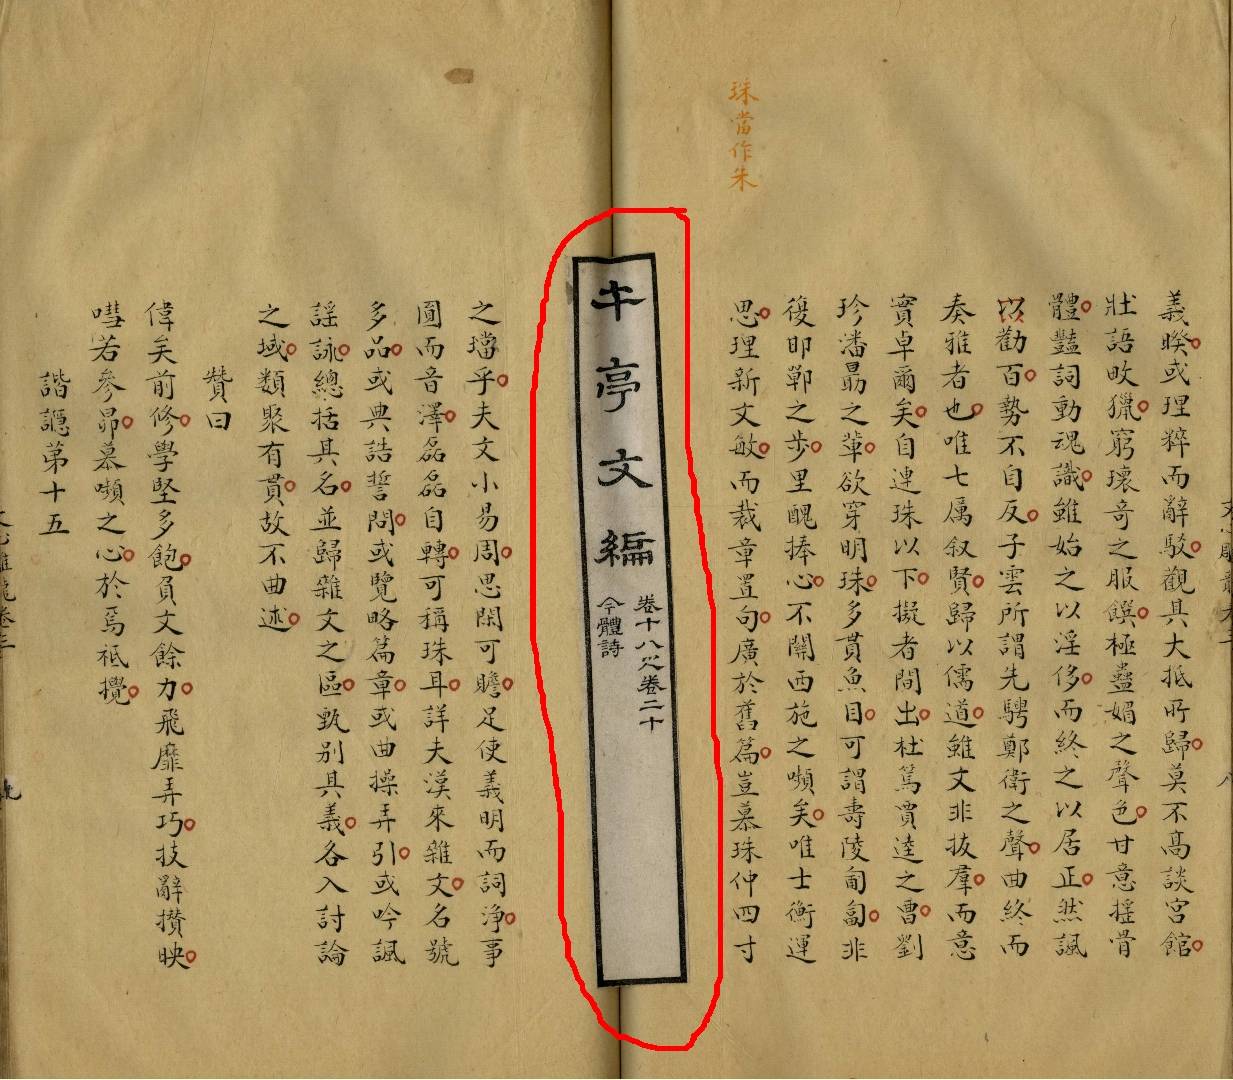 珠當作朱
義睽或理粹而辭駁觀其大抵所歸莫不高談宮館
壯語畋獵窮瓌奇之服饌極蠱媚之聲色甘意搖骨
體豔詞動魂識雖始之以淫侈而終之以居正然諷
以勸百勢不自反子雲所謂先騁鄭衛之聲曲終而
奏雅者也唯七厲叙賢歸以儒道雖文非拔羣而意
實卓爾矣自連珠以下擬者間出杜篤賈逵之曹劉
珍潘勗之輩欲穿明珠多貫魚目可謂壽陵匍匐非
復邯鄲之步里醜捧心不關西施之嚬矣唯士衡運
思理新文敏而裁章置句廣於舊篇豈慕珠仲四寸
午亭文編
卷十八之卷二十
今體詩
之璫乎夫文小易周思閑可贍足使義明而詞淨事
圓而音澤磊磊自轉可稱珠耳詳夫漢來雜文名號
多品或典誥誓問或覽略篇章或曲操弄引或吟諷
謠詠總括其名並歸雜文之區甄别其義各入討論
之域類聚有貫故不曲述
贊曰
偉矣前修學堅多飽負文餘力飛靡弄巧技辭攢映
嘒若參昴慕嚬之心於焉祗攪
諧讔第十五